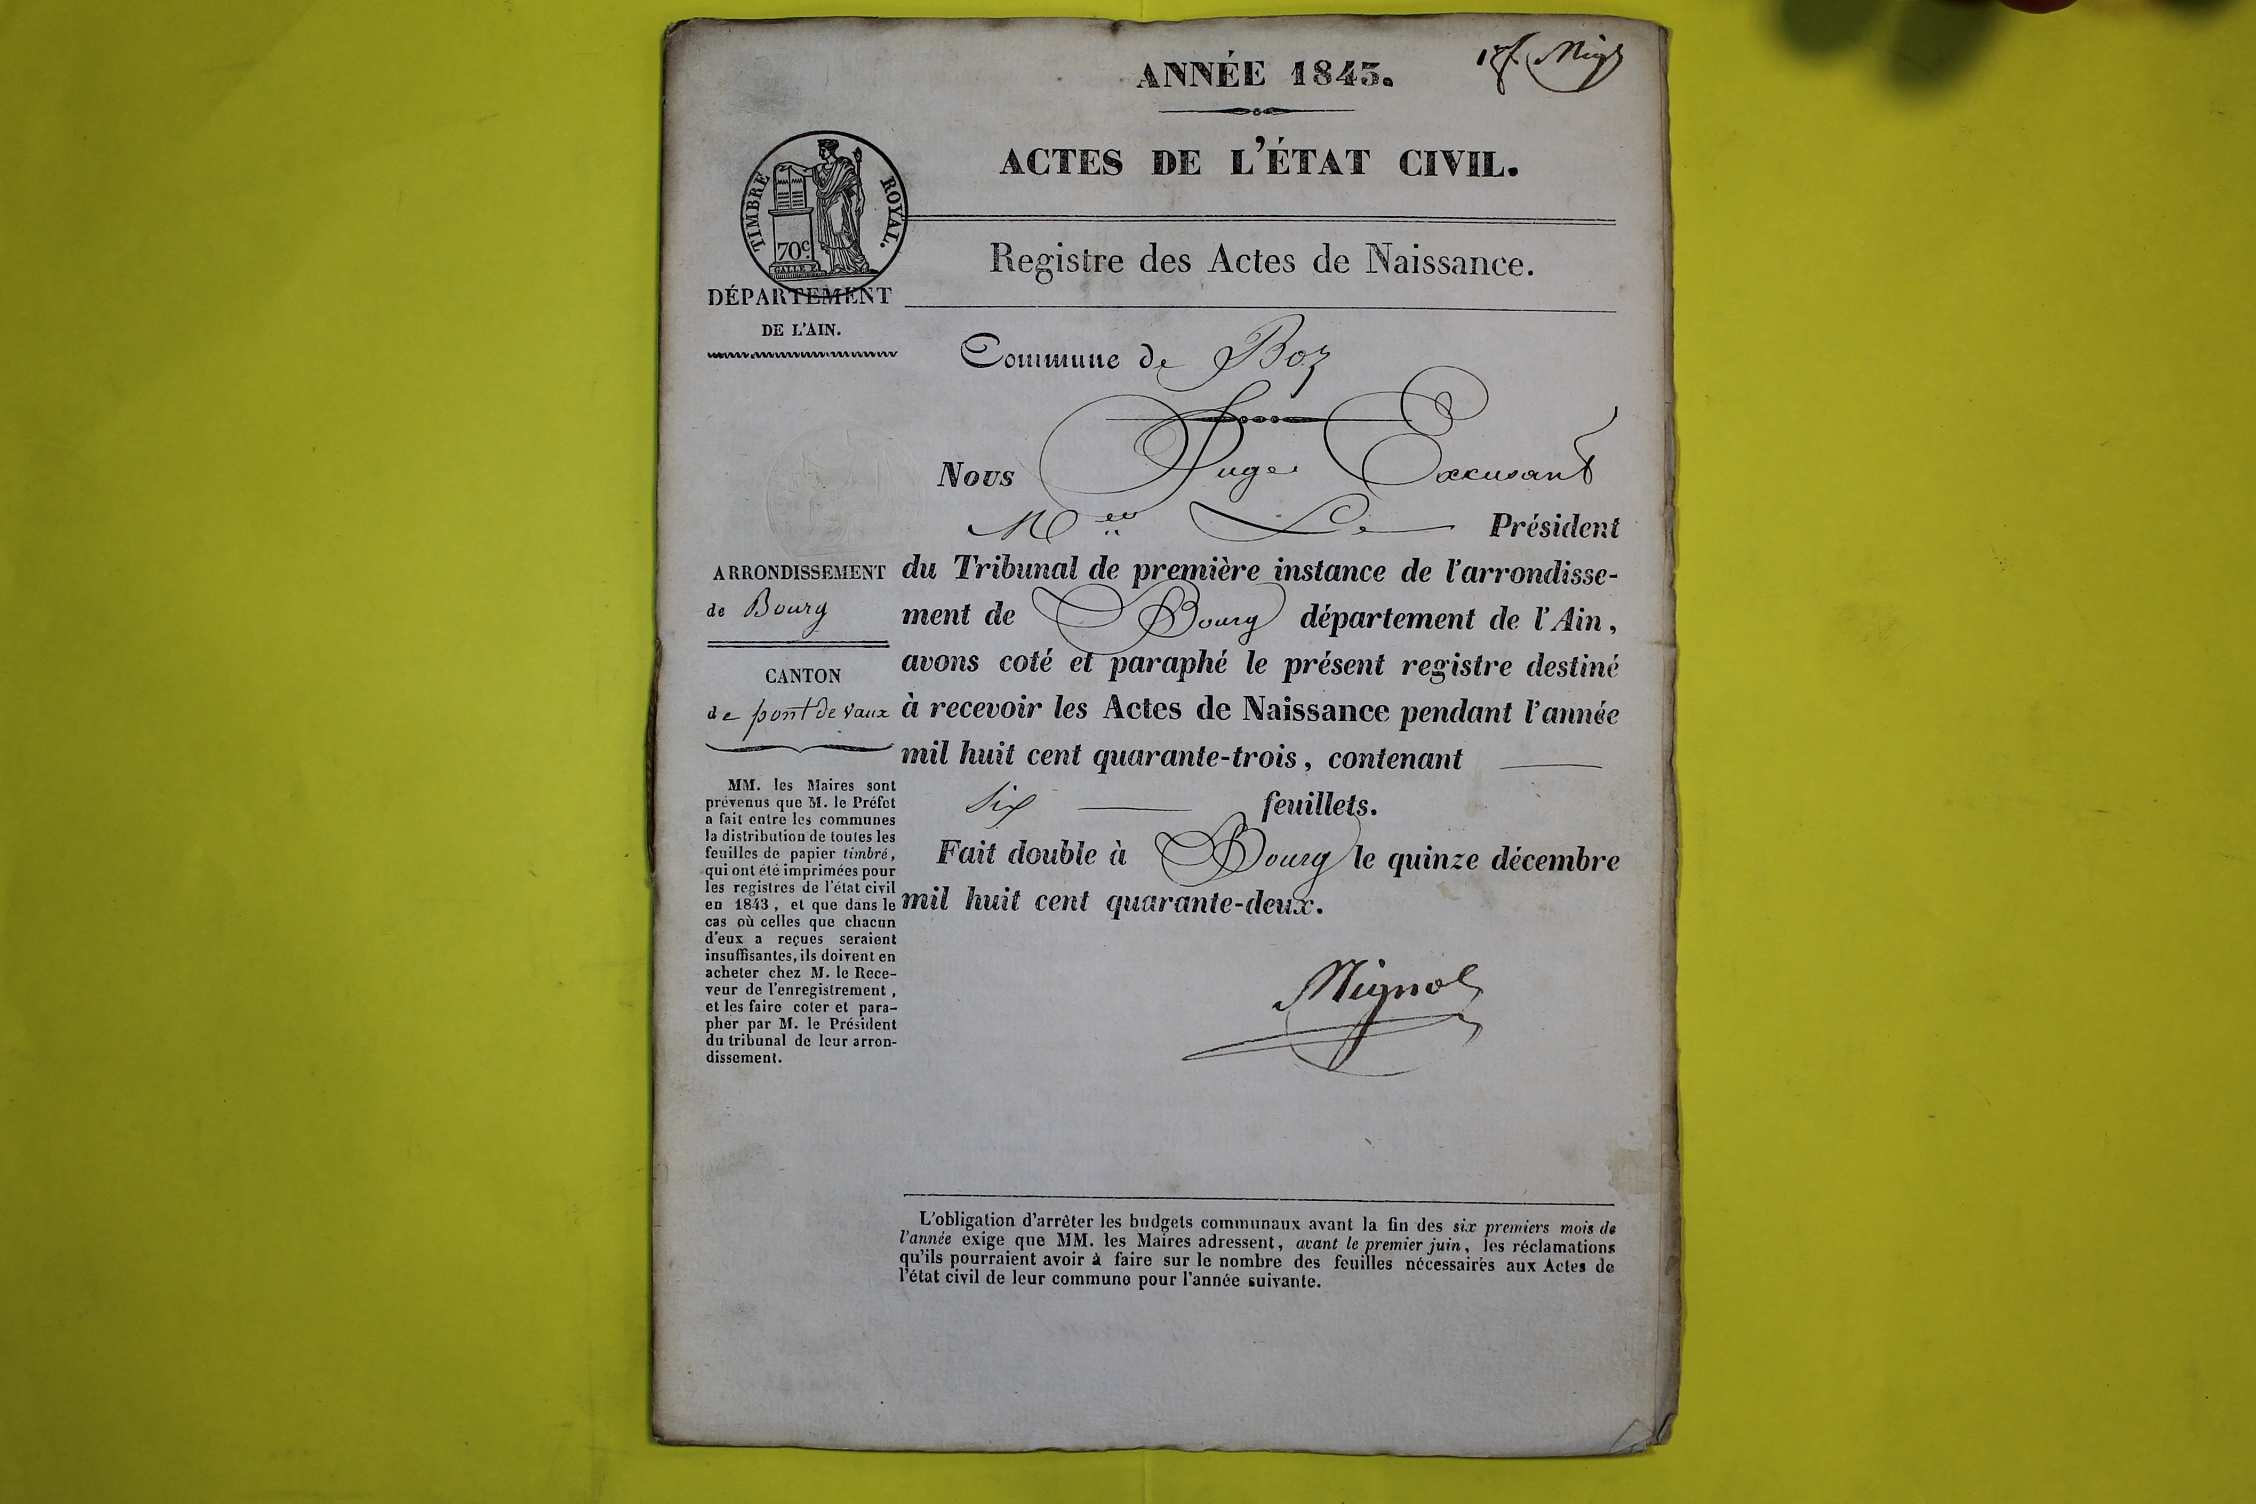 ANNÉE 1843.
ACTES DE L'ÉTAT CIVIL.
TIMBRE ROYAL.
70c.
Registre des Actes de Naissance.
DÉPARTEMENT
DE L'AIN.
Commune de Boz
Nous Juge Excusant
Mr Le Président
du Tribunal de première instance de l'arrondisse-
ment de Bourg département de l'Ain,
avons coté et paraphé le présent registre destiné
à recevoir les Actes de Naissance pendant l'année
mil huit cent quarante-trois, contenant
six feuillets.
Fait double à Bourg le quinze décembre
mil huit cent quarante-deux.
ARRONDISSEMENT
de Bourg
CANTON
de pont de vaux
MM. les Maires sont
prévenus que M. le Préfet
a fait entre les communes
la distribution de toutes les
feuilles de papier timbré,
qui ont été imprimées pour
les registres de l'état civil
en 1843, et que dans le
cas où celles que chacun
d'eux a reçues seraient
insuffisantes, ils doivent en
acheter chez M. le Rece-
veur de l'enregistrement,
et les faire coter et para-
pher par M. le Président
du tribunal de leur arron-
dissement.
L'obligation d'arrêter les budgets communaux avant la fin des six premiers mois de
l'année exige que MM. les Maires adressent, avant le premier juin, les réclamations
qu'ils pourraient avoir à faire sur le nombre des feuilles nécessaires aux Actes de
l'état civil de leur commune pour l'année suivante.